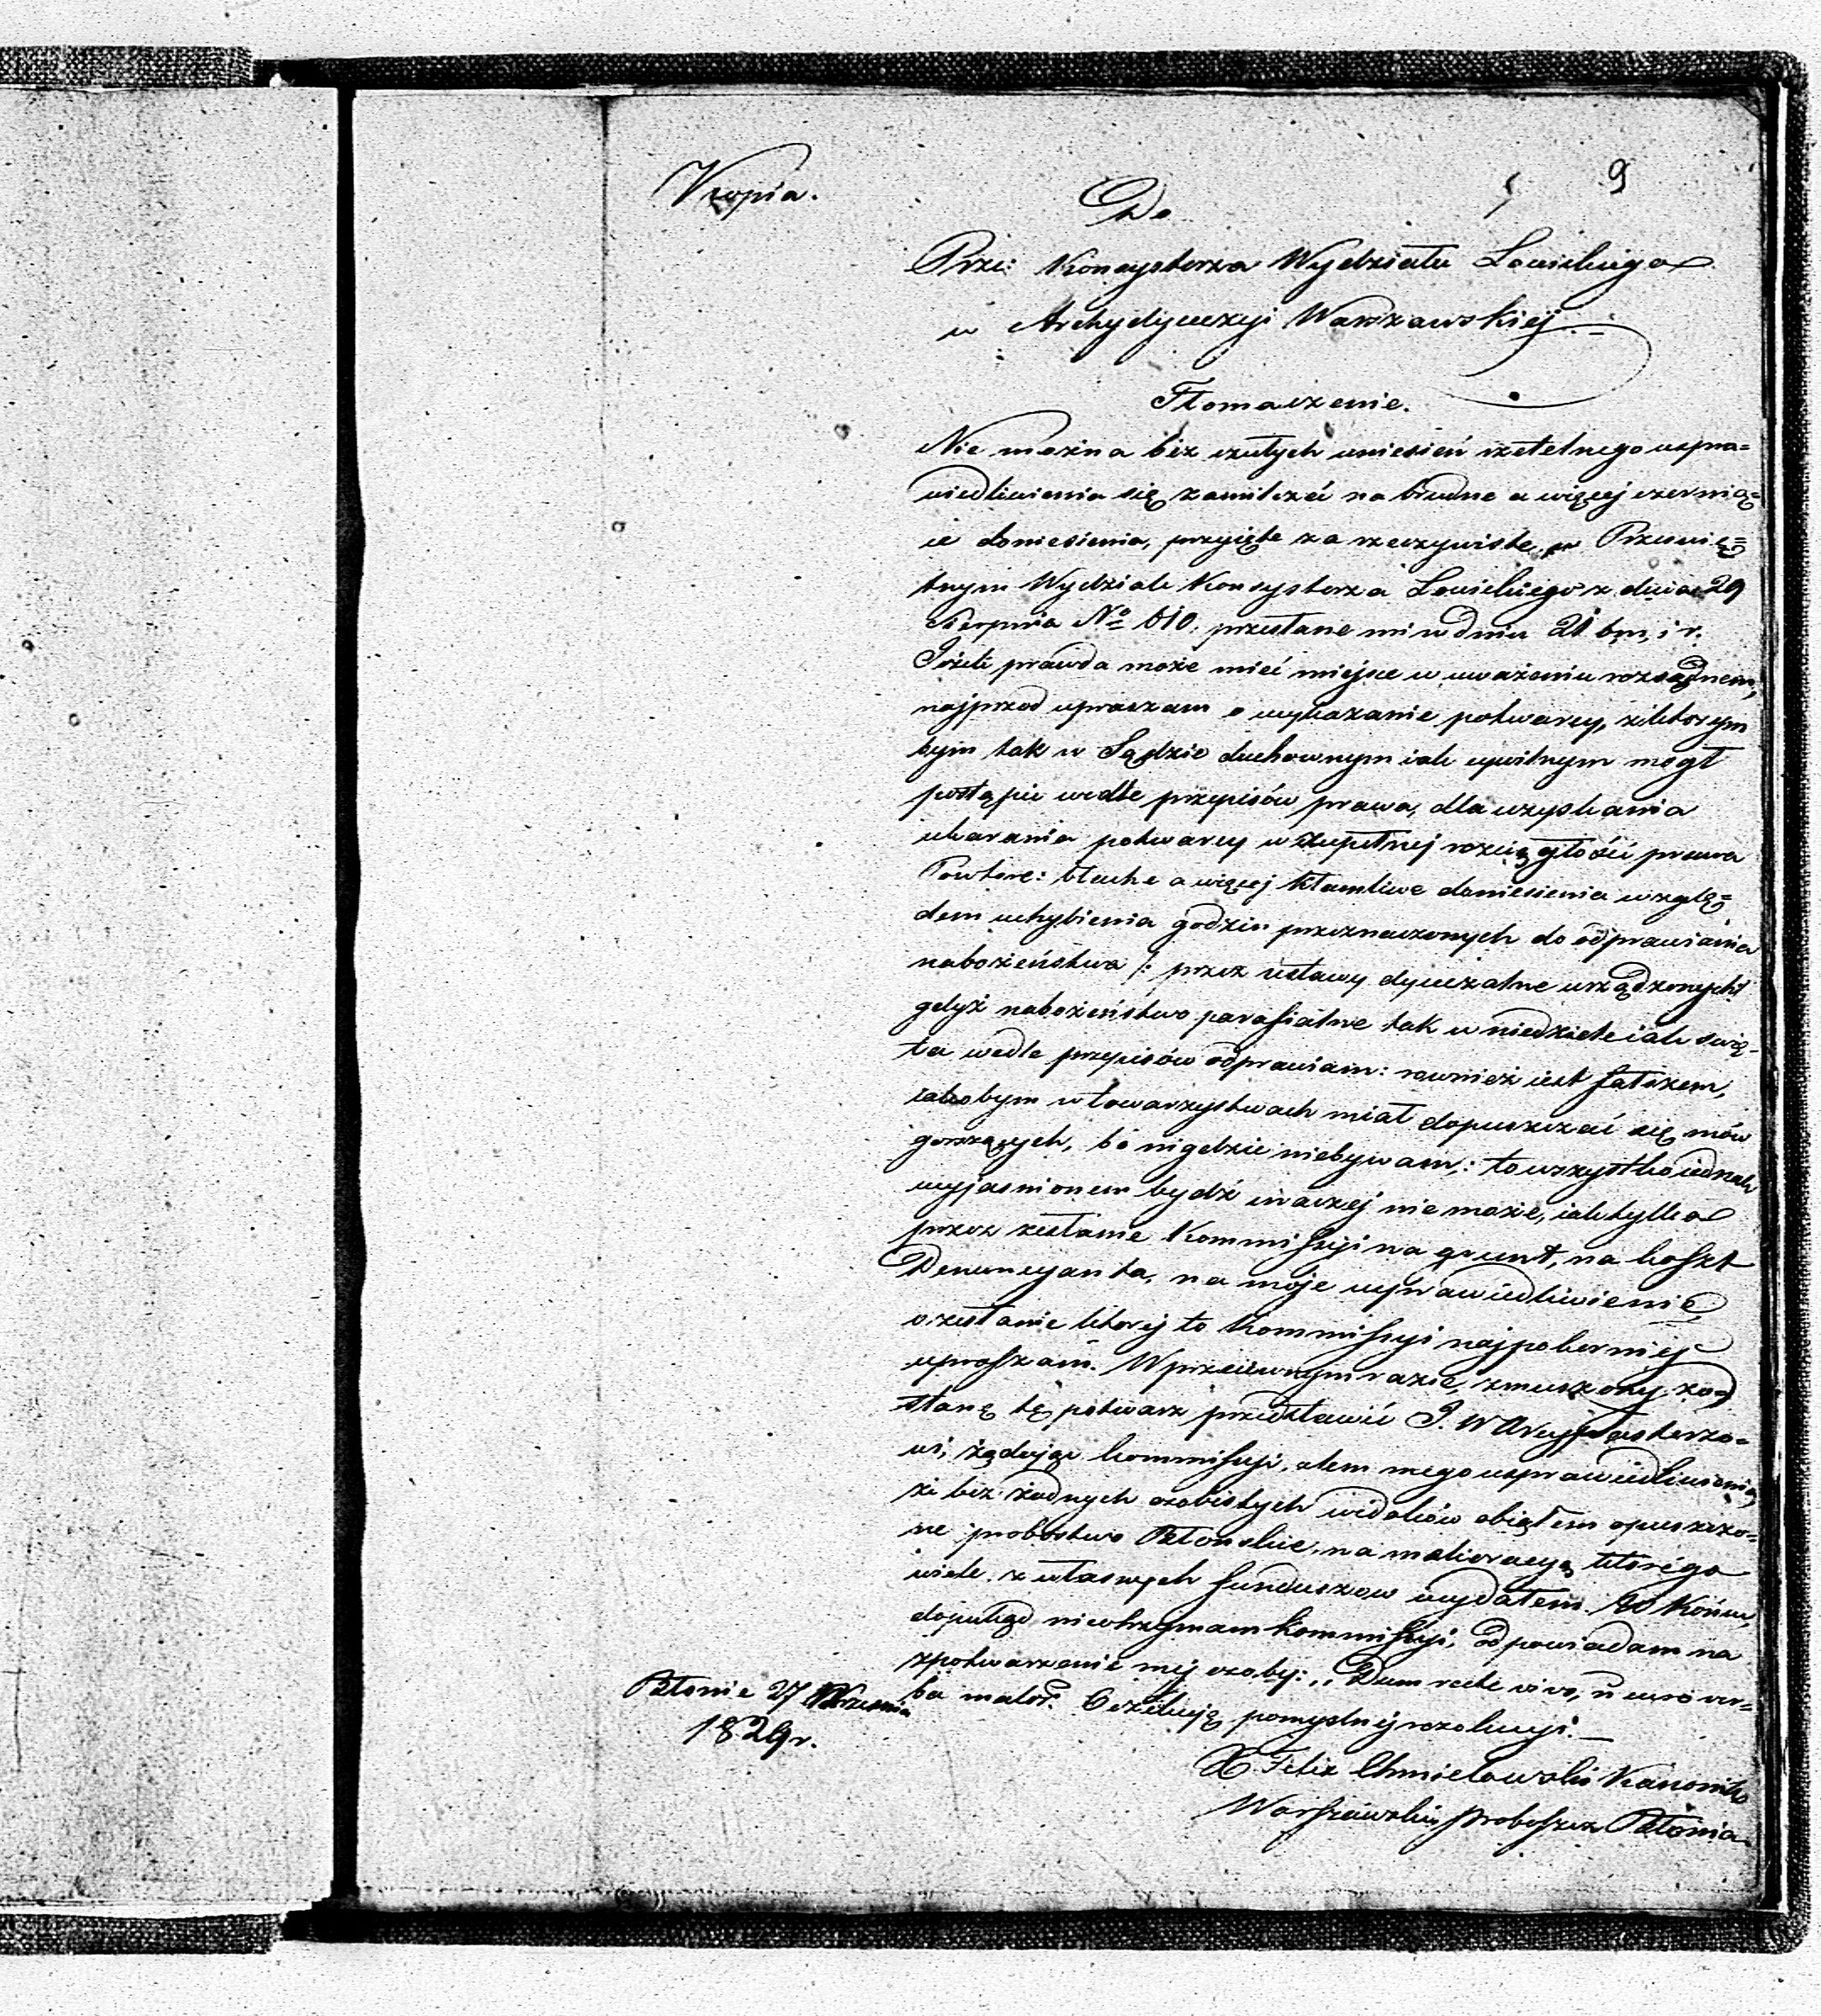 Kopia.
9
Do
Prze: Konsystorza Wydziału Łowickiego
w Archydyecezyi Warszawskiéj.
Tłomaczenie.
Nie można bez czułych uniesień rzetelnego uspra=
wiedliwienia się zamilczeć na brudne a więcej czernią=
ce doniesienia, przyięte za rzeczywiste, w Prześwię=
tnym Wydziale Konsystorza Łowickiego z dnia 29
Sierpnia No 610. przesłane mi w dniu 21 bm. i r.
Jeżeli prawda może mieć miejsce w uważeniu rozsądnem,
najprzod upraszam o wykazanie potwarcy, z którym
bym tak w Sądzie duchownym iak cywilnym mogł
postąpić wedle przepisów prawa, dla uzyskania
ukarania potwarcy w zupełnej rozciągłości prawa
Powtore: błache a więcej kłamliwe doniesienia wzglę=
dem uchybienia godzin przeznaczonych do odprawiania
nabożeństwa /: przez ustawy dyecezalne urządzonych:/
gdyż nabożeństwo parafialne tak w niedziele iak świę=
ta wedle przepisów odprawiam: rownież iest fałszem,
iakobym w towarzystwach miał dopuszczać się mów
gorszących, bo nigdzie niebywam: to wszystko iednak
wyjasnionem bydź inaczej nie może, iak tylko
przez zesłanie Kommissyi na grunt, na koszt
Denuncyanta, na moje usprawiedliwienie
o zesłanie ktorej to Kommissyi najpokorniej
upraszam. W przeciwnym razie, zmuszony zo=
stanę tę potwarz przedstawić J. W Arcypasterzo=
wi, żądając kommissyi, celem mego usprawiedliwienia,
że bez żadnych osobistych widoków obiąłem opuszczo=
ne probostwo Błonskie, na melioracyą ktorégo
wiele z własnych funduszow wydałem. W Końcu,
dopokąd nieotrzymam Kommissyi, odpowiadam na
spotwarzenie mej osoby: „Dum recte vivo, n curo ver=
ba malor". Oczekuję pomyslnej rezolucyi.
Błonie 27 Września
1829 r.
X. Felix Chmielowski Kanonik
Warszawski Proboszcz Błonia